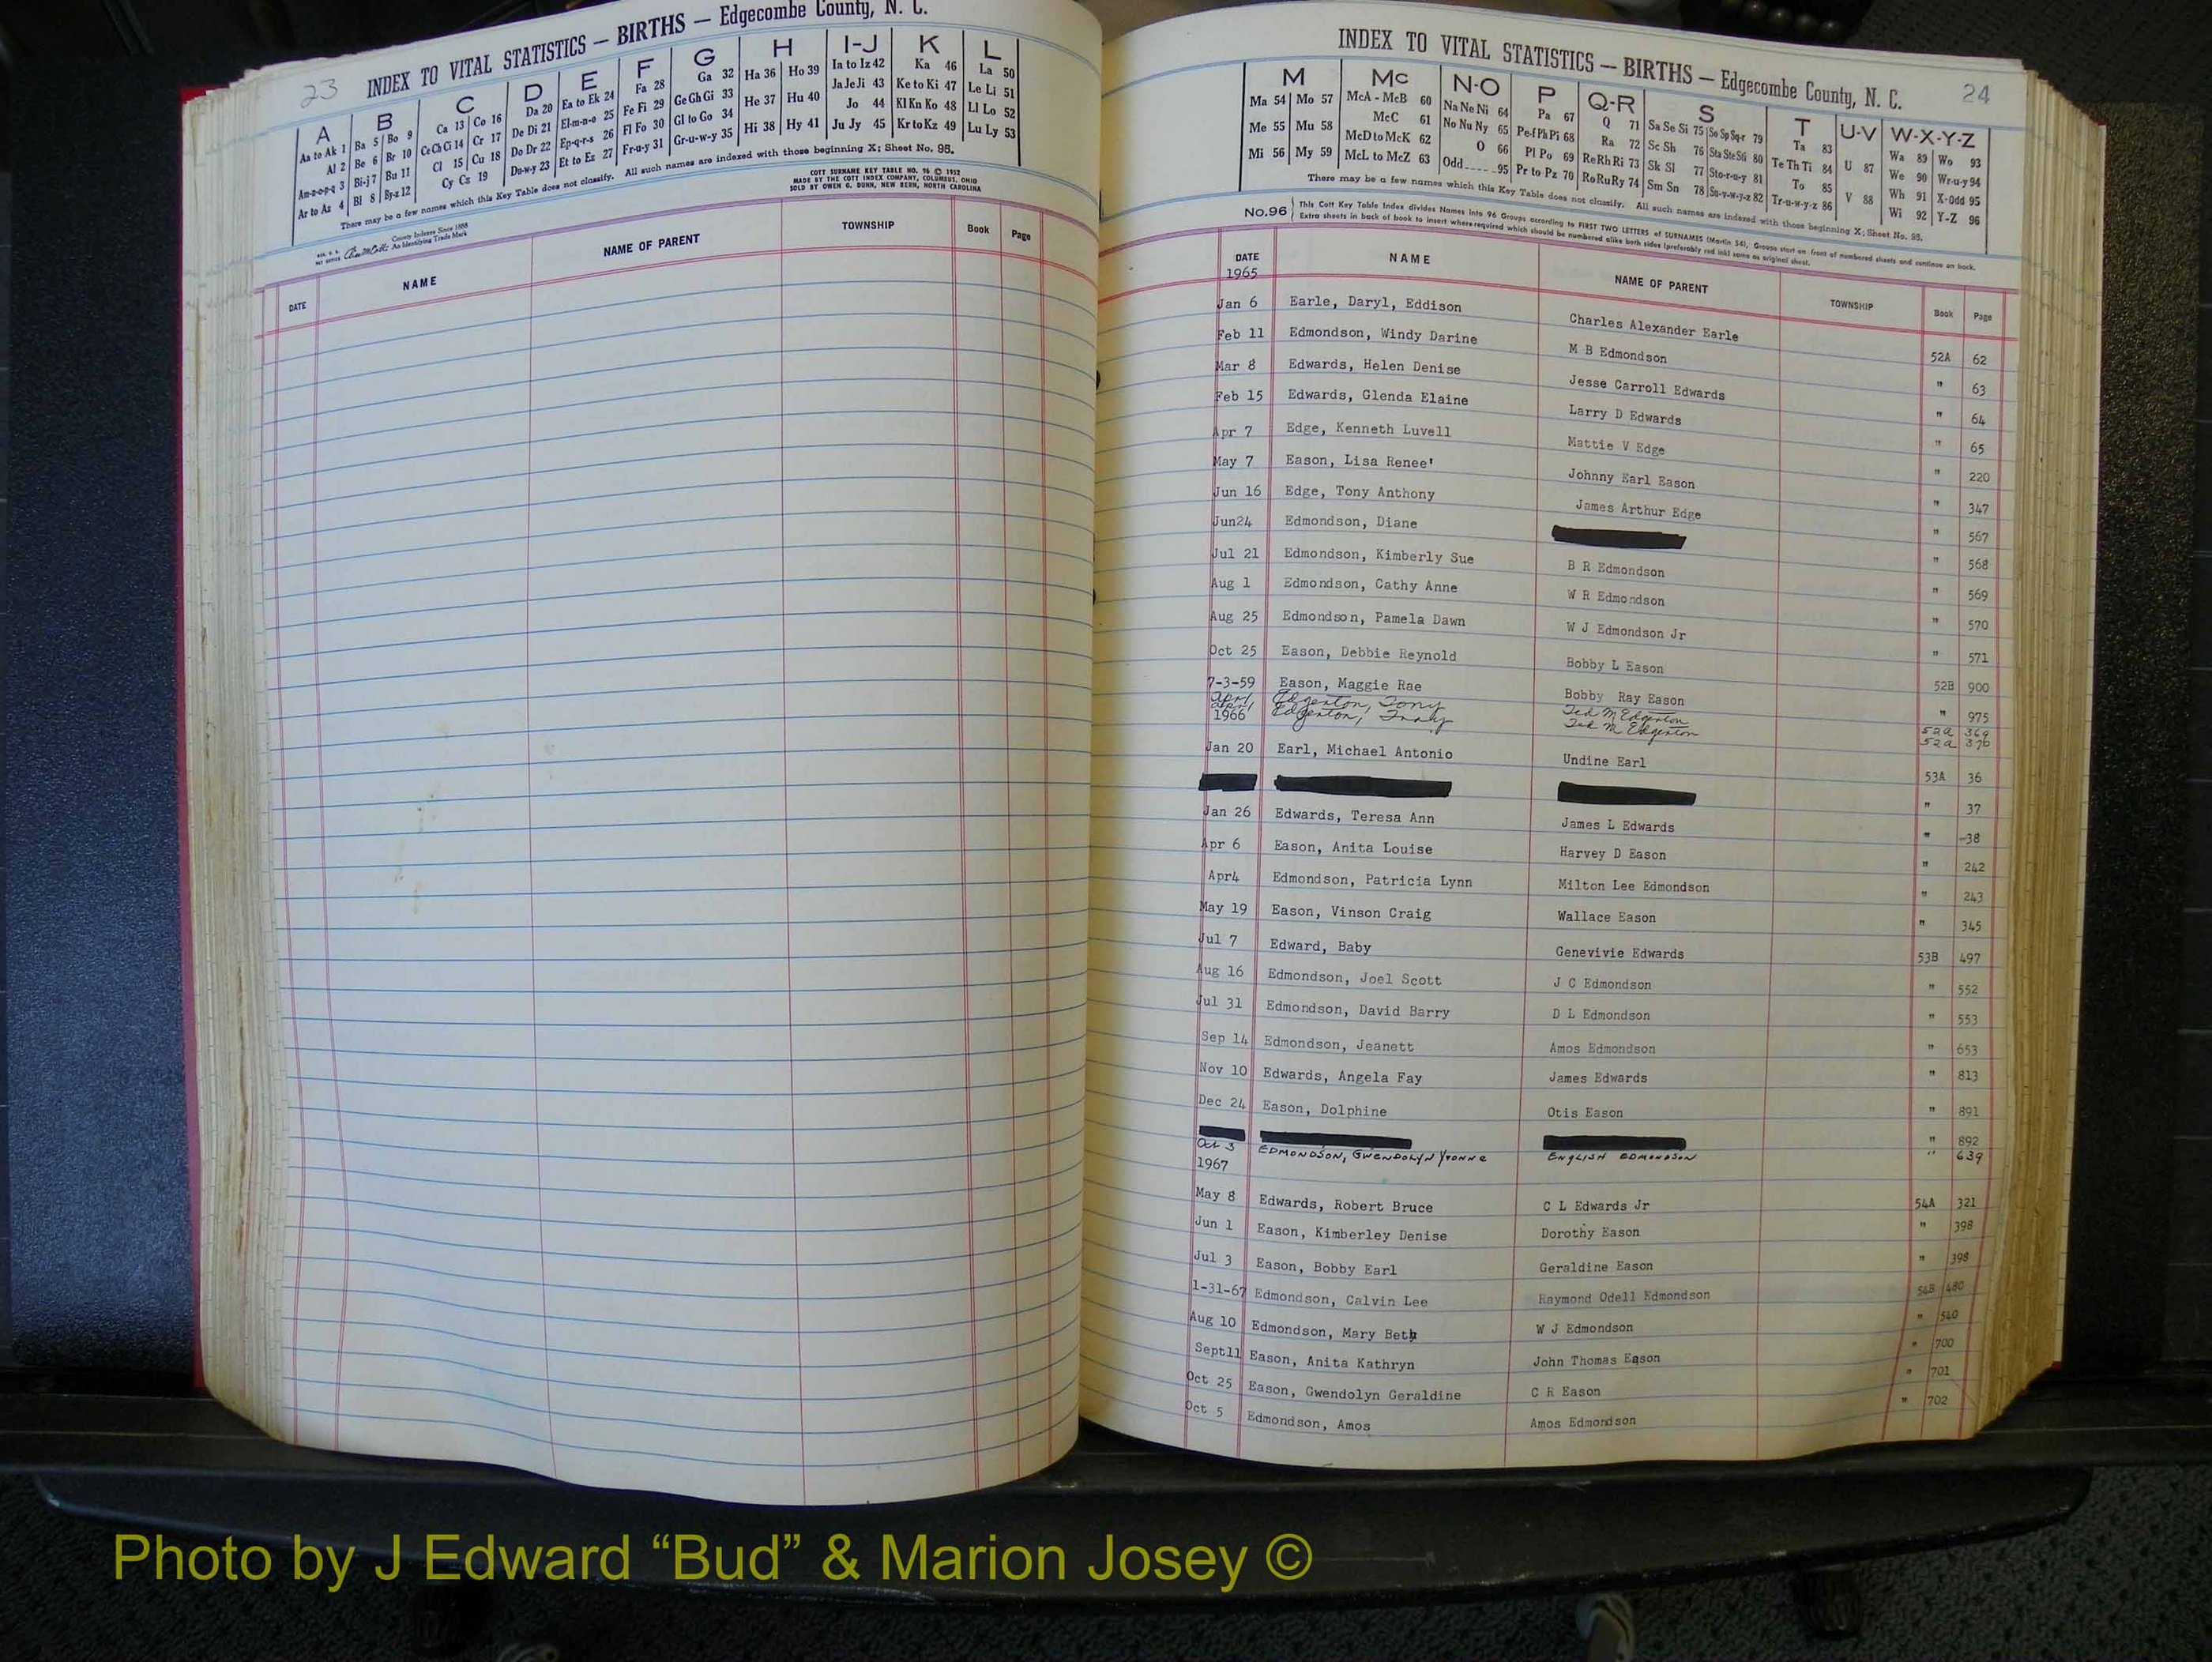 23 INDEX TO VITAL STATISTICS — BIRTHS — Edgecombe County, N. C.
A B C D E F G H I-J K L
Aa to Ak 1 Ba 5 Bo 9 Ca 13 Co 16 Da 20 Ea to Ek 24 Fa 28 Ga 32 Ha 36 Ho 39 Ia to Iz 42 Ka 46 La 50
Al 2 Be 6 Br 10 Ce Ch Ci 14 Cr 17 De Di 21 El-m-n-o 25 Fe Fi 29 Ge Gh Gi 33 He 37 Hu 40 Ja Je Ji 43 Ke to Ki 47 Le Li 51
Am-n-o-p-q 3 Bi-j 7 Bu 11 Cl 15 Cu 18 Do Dr 22 Ep-q-r-s 26 Fl Fo 30 Gl to Go 34 Hi 38 Hy 41 Jo 44 Kl Kn Ko 48 Ll Lo 52
Ar to Az 4 Bl 8 By-z 12 Cy Cz 19 Du-w-y 23 Et to Ez 27 Fr-u-y 31 Gr-u-w-y 35 Ju Jy 45 Kr to Kz 49 Lu Ly 53
There may be a few names which this Key Table does not classify. All such names are indexed with those beginning X; Sheet No. 95.
COTT SURNAME KEY TABLE NO. 96 © 1952
MADE BY THE COTT INDEX COMPANY, COLUMBUS, OHIO
SOLD BY OWEN G. DUNN, NEW BERN, NORTH CAROLINA
County Indexes Since 1888
An Identifying Trade Mark
DATE NAME NAME OF PARENT TOWNSHIP Book Page
INDEX TO VITAL STATISTICS — BIRTHS — Edgecombe County, N. C. 24
M Mc N-O P Q-R S T U-V W-X-Y-Z
Ma 54 Mo 57 McA - McB 60 Na Ne Ni 64 Pa 67 Q 71 Sa Se Si 75 So Sp Sq-r 79 Ta 83 U 87 Wa 89 Wo 93
Me 55 Mu 58 McC 61 No Nu Ny 65 Pe-f Ph Pi 68 Ra 72 Sc Sh 76 Sta Ste Sti 80 Te Th Ti 84 V 88 We 90 Wr-u-y 94
Mi 56 My 59 McD to McK 62 O 66 Pl Po 69 Re Rh Ri 73 Sk Sl 77 Sto-r-u-y 81 To 85 Wh 91 X-Odd 95
McL to McZ 63 Odd 95 Pr to Pz 70 Ro Ru Ry 74 Sm Sn 78 Su-v-w-y-z 82 Tr-u-w-y-z 86 Wi 92 Y-Z 96
There may be a few names which this Key Table does not classify. All such names are indexed with those beginning X; Sheet No. 95.
No.96 This Cott Key Table Index divides Names into 96 Groups according to FIRST TWO LETTERS of SURNAMES (Martin 54), Groups start on front of numbered sheets and continue on back.
Extra sheets in back of book to insert where required which should be numbered alike both sides (preferably red ink) same as original sheet.
DATE NAME NAME OF PARENT TOWNSHIP Book Page
1965
Jan 6 Earle, Daryl, Eddison Charles Alexander Earle 52A 62
Feb 11 Edmondson, Windy Darine M B Edmondson " 63
Mar 8 Edwards, Helen Denise Jesse Carroll Edwards " 64
Feb 15 Edwards, Glenda Elaine Larry D Edwards " 65
Apr 7 Edge, Kenneth Luvell Mattie V Edge " 220
May 7 Eason, Lisa Renee' Johnny Earl Eason " 347
Jun 16 Edge, Tony Anthony James Arthur Edge " 567
Jun24 Edmondson, Diane " 568
Jul 21 Edmondson, Kimberly Sue B R Edmondson " 569
Aug 1 Edmondson, Cathy Anne W R Edmondson " 570
Aug 25 Edmondson, Pamela Dawn W J Edmondson Jr " 571
Oct 25 Eason, Debbie Reynold Bobby L Eason 52B 900
7-3-59 Eason, Maggie Rae Bobby Ray Eason " 975
Apr 1 Edgerton, Tony Ted M Edgerton 52a 369
Apr 1 Edgerton, Tracy Ted M Edgerton 52a 370
1966
Jan 20 Earl, Michael Antonio Undine Earl 53A 36
" 37
Jan 26 Edwards, Teresa Ann James L Edwards " 38
Apr 6 Eason, Anita Louise Harvey D Eason " 242
Apr4 Edmondson, Patricia Lynn Milton Lee Edmondson " 243
May 19 Eason, Vinson Craig Wallace Eason " 345
Jul 7 Edward, Baby Genevivie Edwards 53B 497
Aug 16 Edmondson, Joel Scott J C Edmondson " 552
Jul 31 Edmondson, David Barry D L Edmondson " 553
Sep 14 Edmondson, Jeanett Amos Edmondson " 653
Nov 10 Edwards, Angela Fay James Edwards " 813
Dec 24 Eason, Dolphine Otis Eason " 891
" 892
Oct 3 EDMONDSON, GWENDOLYN YVONNE ENGLISH EDMONDSON " 639
1967
May 8 Edwards, Robert Bruce C L Edwards Jr 54A 321
Jun 1 Eason, Kimberley Denise Dorothy Eason " 398
Jul 3 Eason, Bobby Earl Geraldine Eason " 398
1-31-67 Edmondson, Calvin Lee Raymond Odell Edmondson 54B 480
Aug 10 Edmondson, Mary Beth W J Edmondson " 540
Sept11 Eason, Anita Kathryn John Thomas Eason " 700
Oct 25 Eason, Gwendolyn Geraldine C R Eason " 701
Oct 5 Edmondson, Amos Amos Edmondson " 702
Photo by J Edward “Bud” & Marion Josey ©